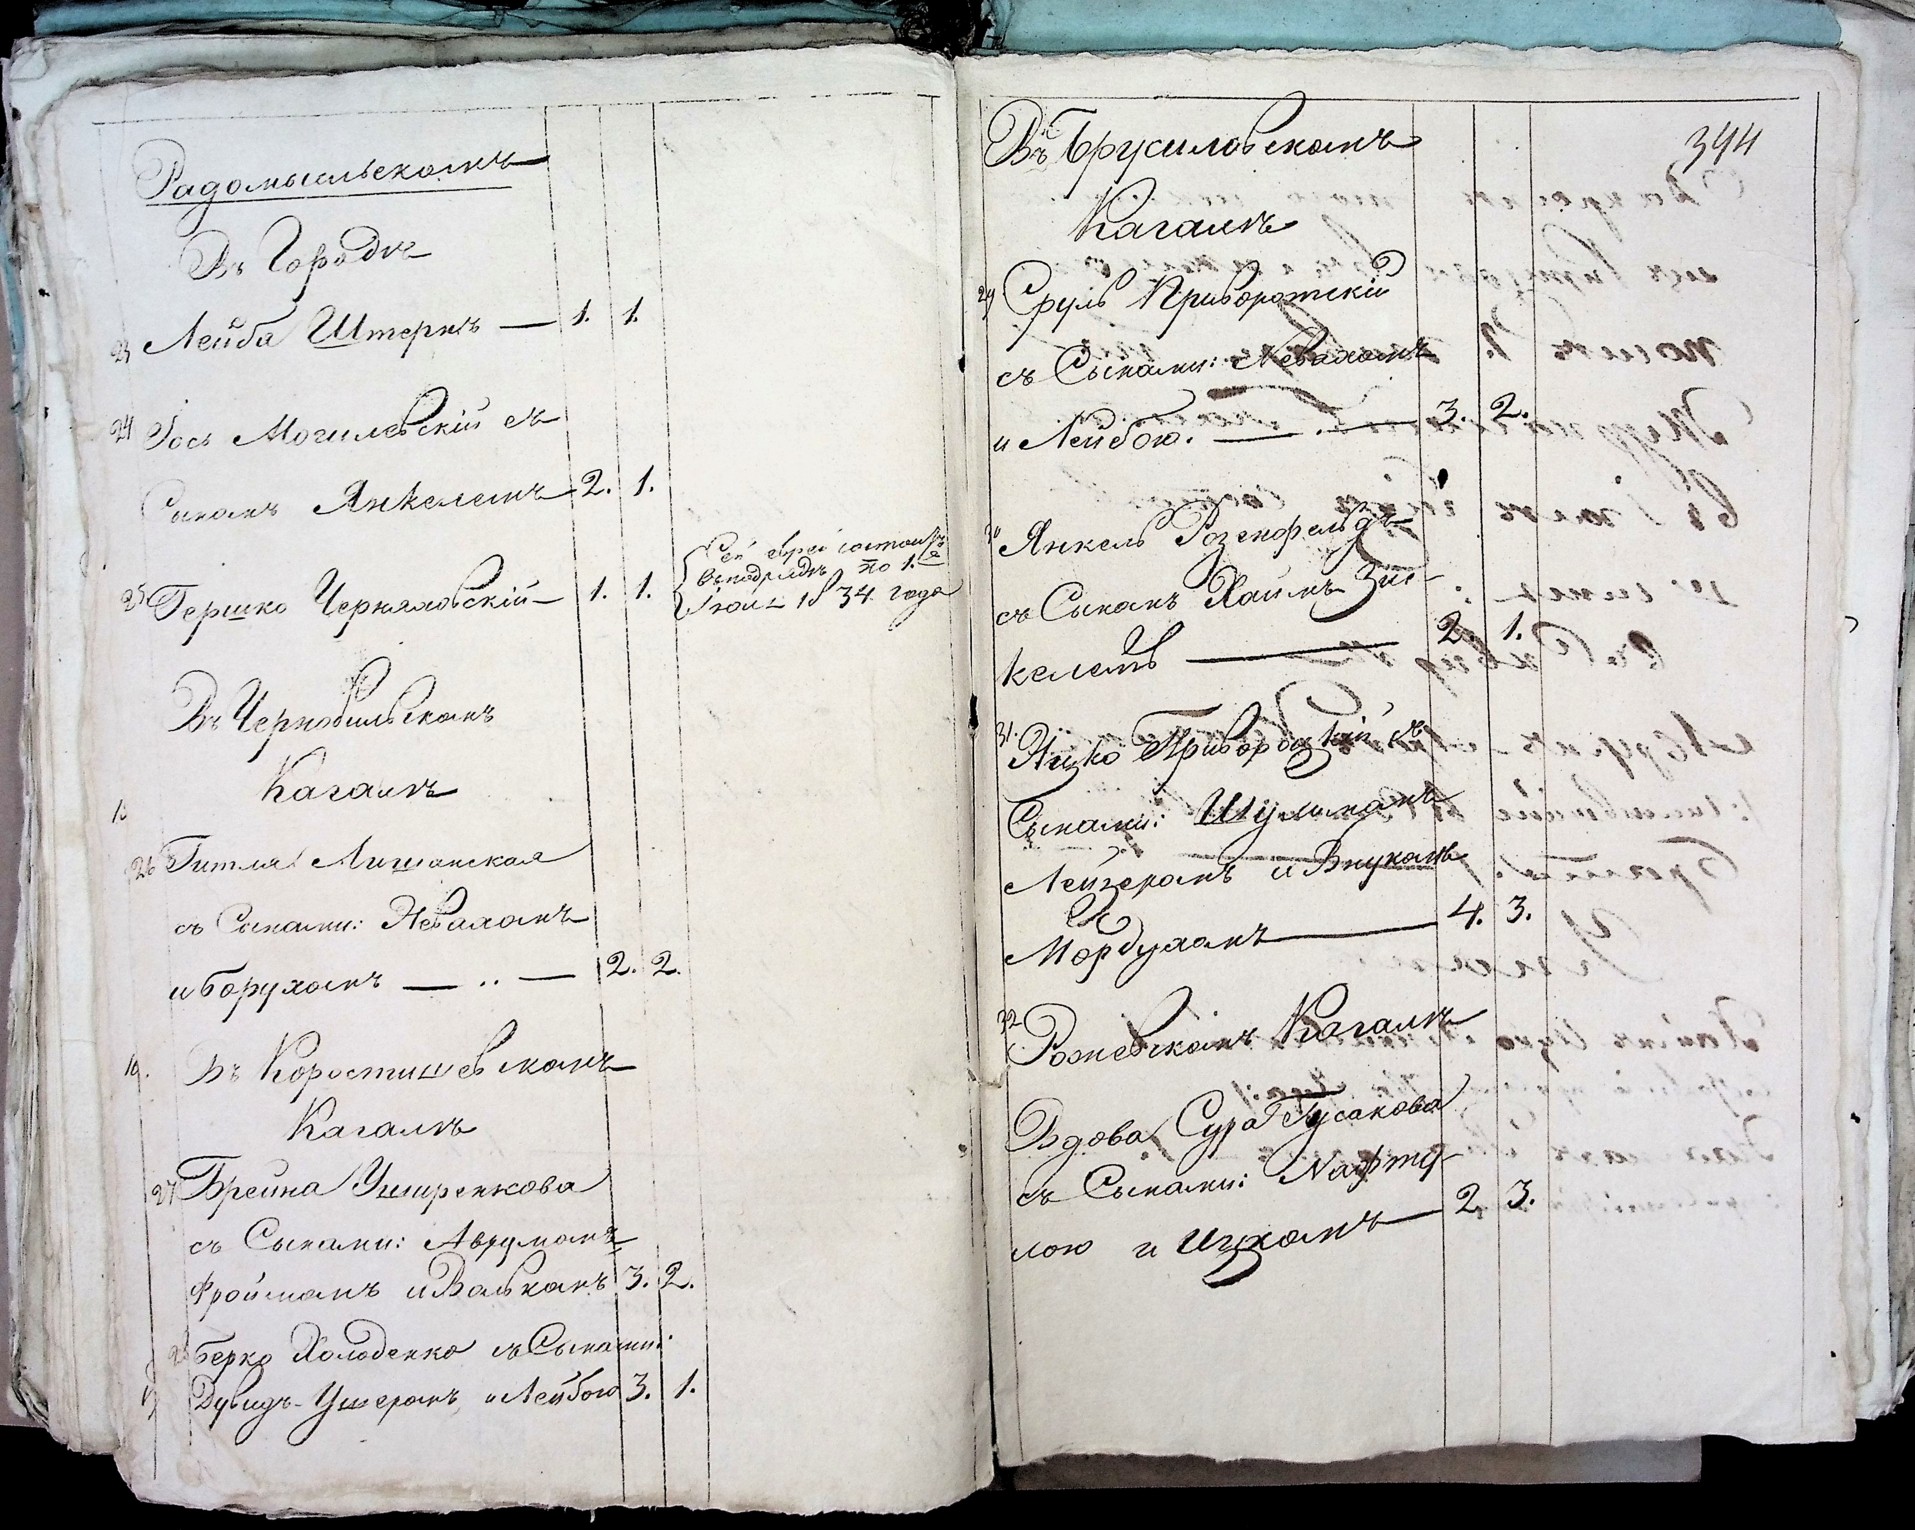 Радомысльскомъ
Въ Городѣ
23 Лейба Штернъ — 1. 1.
24 Іось Могилевскій съ
Сыномъ Янкелемъ 2. 1.
25 Гершко Черняховскій — 1. 1.
Сей еврей состоитъ
по 1.е
1834 года
Въ Чернобыльскомъ
Кагалѣ
26 Гитля Лишанская
съ Сынами: Невахомъ
и Борухомъ — .. — 2. 2.
16. Въ Коростишевскомъ
Кагалѣ
27 Брейна
съ Сынами: Аврумомъ
Фроймомъ и Волькомъ 3. 2.
28 Берко Холоденко съ Сынами:
Дувидъ-Ушеромъ, и Лейбою 3. 1.
394
Въ Брусиловскомъ
Кагалѣ
29 Сруль Приворотскій
съ Сынами: Невахомъ
и Лейбою. — . — 3. 2.
30 Янкель Розенфельдъ
съ Сыномъ Хаимъ Зис-
келемъ — 2. 1.
31. Ицко Приворотскій съ
Сынами: Шулимомъ
Лейзеромъ и Внукомъ
Мордухомъ — 4. 3.
32 Рожевскомъ Кагалѣ
Вдова Сура Гусакова
съ Сынами: Нафту-
лою и Ицхомъ — 2. 3.